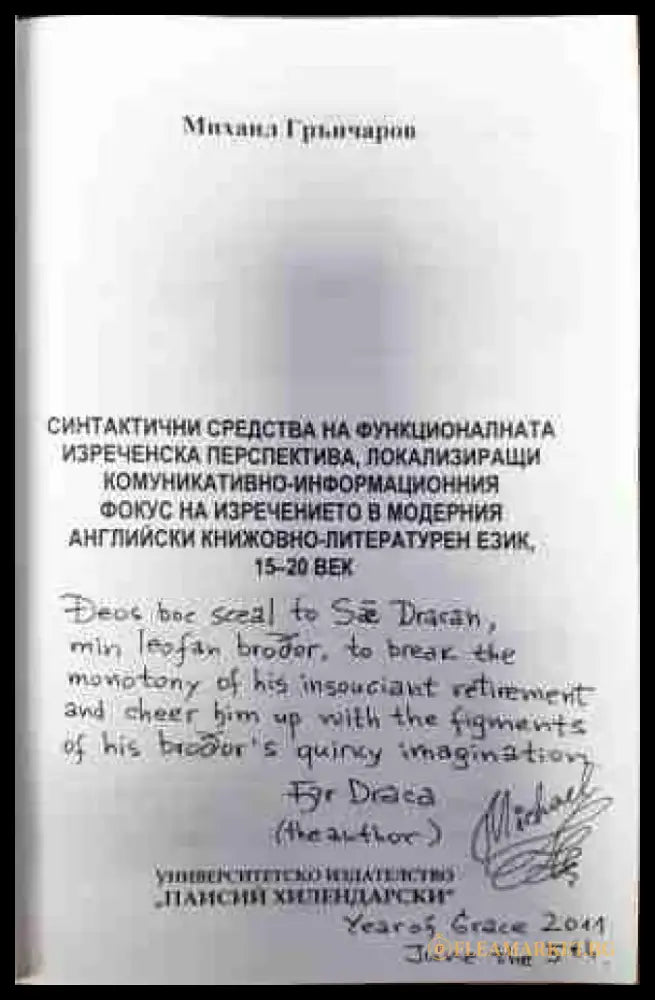 Михаил Грънчаров
СИНТАКТИЧНИ СРЕДСТВА НА ФУНКЦИОНАЛНАТА
ИЗРЕЧЕНСКА ПЕРСПЕКТИВА, ЛОКАЛИЗИРАЩИ
КОМУНИКАТИВНО-ИНФОРМАЦИОННИЯ
ФОКУС НА ИЗРЕЧЕНИЕТО В МОДЕРНИЯ
АНГЛИЙСКИ КНИЖОВНО-ЛИТЕРАТУРЕН ЕЗИК,
15–20 ВЕК
Ðeos boc sceal to Sǣ Dracan,
min leofan broðor, to break the
monotony of his insouciant retirement
and cheer him up with the figments
of his broðor's quirky imagination
Fyr Draca
(the author)
Michael
УНИВЕРСИТЕТСКО ИЗДАТЕЛСТВО
„ПАИСИЙ ХИЛЕНДАРСКИ“
Year of Grace 2011
June the 5th
FLEAMARKET.BG